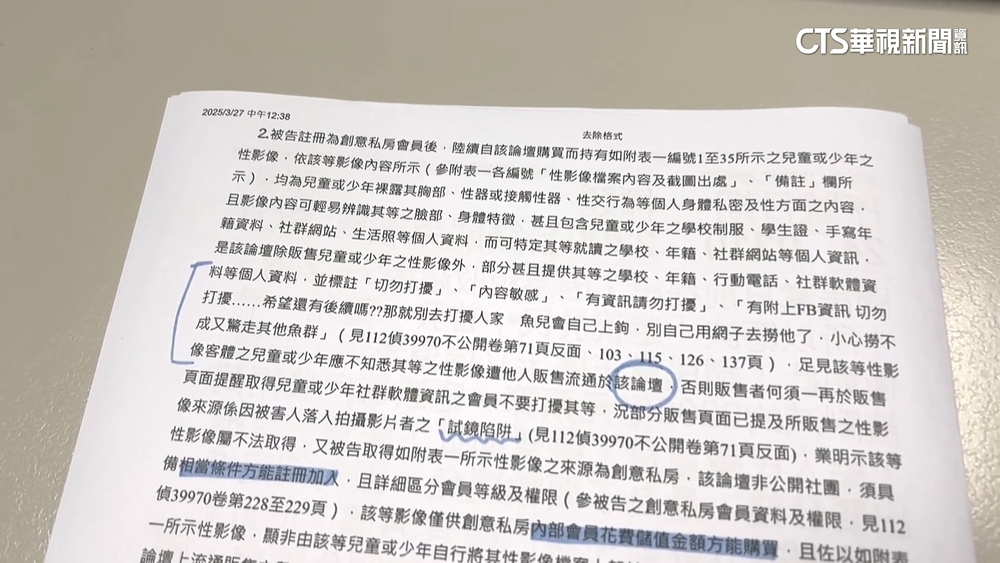 CTS華視新聞資訊
2025/3/27 中午12:38
去除格式
2.被告註冊為創意私房會員後，陸續自該論壇購買而持有如附表一編號1至35所示之兒童或少年之
性影像，依該等影像內容所示（參附表一各編號「性影像檔案內容及截圖出處」、「備註」欄所
示），均為兒童或少年裸露其胸部、性器或接觸性器、性交行為等個人身體私密及性方面之內容，
且影像內容可輕易辨識其等之臉部、身體特徵，甚且包含兒童或少年之學校制服、學生證、手寫年
籍資料、社群網站、生活照等個人資料，而可特定其等就讀之學校、年籍、社群網站等個人資訊，
是該論壇除販售兒童或少年之性影像外，部分甚且提供其等之學校、年籍、行動電話、社群軟體資
料等個人資料，並標註「切勿打擾」、「內容敏感」、「有資訊請勿打擾」、「有附上FB資訊 切勿
打擾……希望還有後續嗎??那就別去打擾人家　魚兒會自己上鉤，別自己用網子去撈他了，小心撈不
成又驚走其他魚群」（見112偵39970不公開卷第71頁反面、103、115、126、137頁），足見該等性影
像客體之兒童或少年應不知悉其等之性影像遭他人販售流通於該論壇，否則販售者何須一再於販售
頁面提醒取得兒童或少年社群軟體資訊之會員不要打擾其等，況部分販售頁面已提及所販售之性影
像來源係因被害人落入拍攝影片者之「試鏡陷阱」(見112偵39970不公開卷第71頁反面)，業明示該等
性影像屬不法取得，又被告取得如附表一所示性影像之來源為創意私房，該論壇非公開社團，須具
備相當條件方能註冊加入，且詳細區分會員等級及權限（參被告之創意私房會員資料及權限，見112
偵39970卷第228至229頁），該等影像僅供創意私房內部會員花費儲值金額方能購買，且佐以如附表
一所示性影像，顯非由該等兒童或少年自行將其性影像檔案
論壇上流通販售之